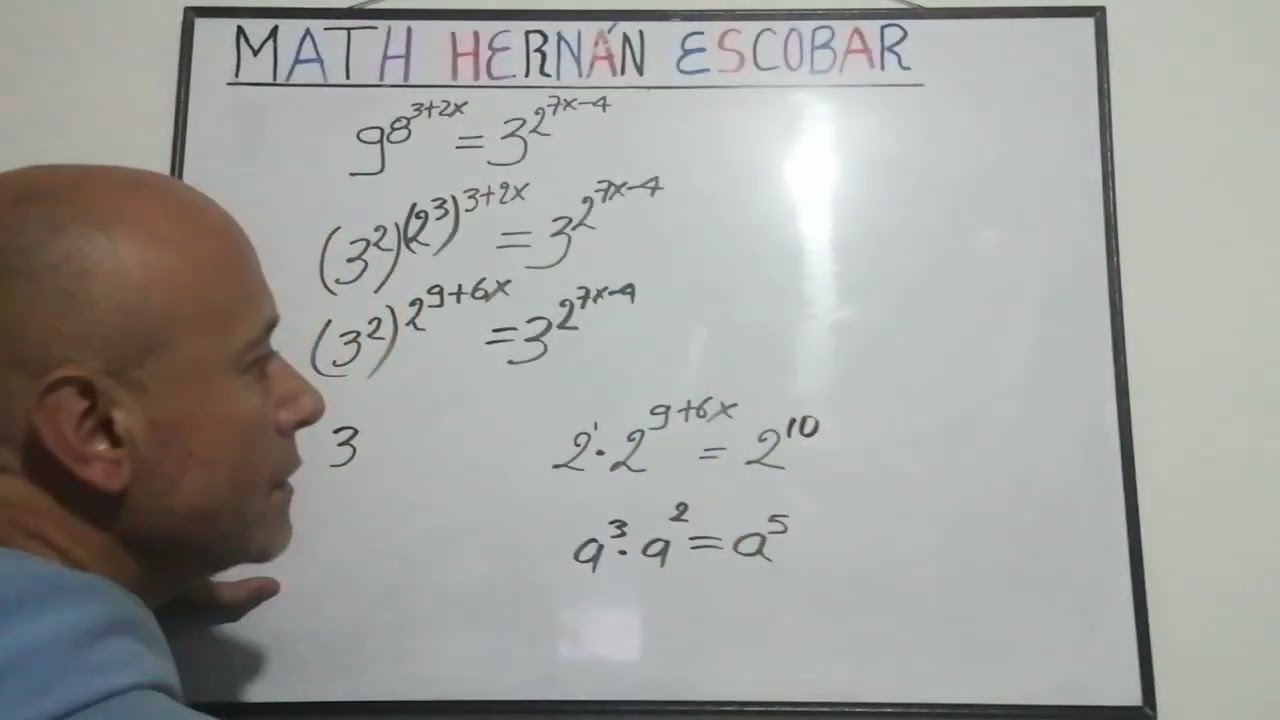 MATH HERNÁN ESCOBAR
9^{8^{3+2x}} = 3^{2^{7x-4}}
(3^2)^{(2^3)^{3+2x}} = 3^{2^{7x-4}}
(3^2)^{2^{9+6x}} = 3^{2^{7x-4}}
3
2^1 · 2^{9+6x} = 2^{10}
a^3 · a^2 = a^5